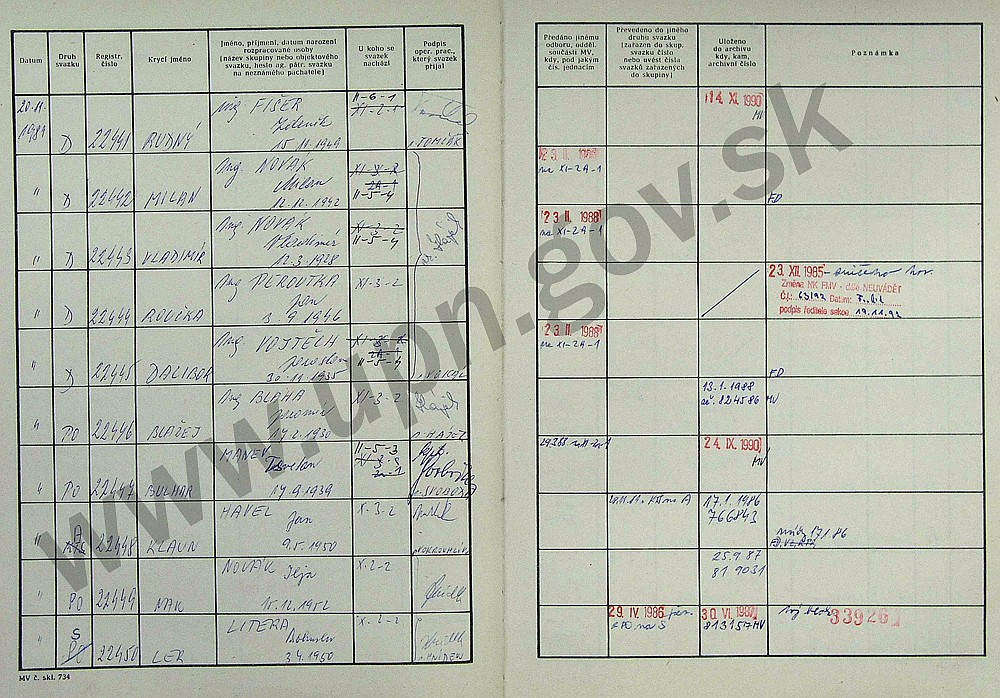 Datum
Druh svazku
Registr. číslo
Krycí jméno
Jméno, příjmení, datum narození
rozpracované osoby
(název skupiny nebo objektového
svazku, heslo ag. pátr. svazku
na neznámého pachatele)
U koho se
svazek
nachází
Podpis
oper. prac.,
který svazek
přijal
Předáno jinému
odboru, odděl.
součásti MV,
kdy, pod jakým
čís. jednacím
Převedeno do jiného
druhu svazku
(zařazen do skup.
svazku číslo
nebo uvést čísla
svazků zařazených
do skupiny)
Uloženo
do archivu
kdy, kam,
archivní číslo
Poznámka
20.11. 1984 D 22441 RUDNÝ
ing FIŠER
Zdeněk
15.11.1949
II-6-1
XI-2-1
TOMČÁK
14. XI. 1990
MV
" D 22442 MILAN
Ing. NOVÁK
Milan
12.12.1942
XI-3-2
2A-1
II-5-4
23. II. 1988
na XI-2A-1
FD
" D 22443 VLADIMÍR
Ing NOVÁK
Vladimír
12.3.1928
XI-3-2
II-5-4
23. II. 1988
na XI-2A-1
" D 22444 ROUČKA
Ing PEROUTKA
Jan
3.9.1946
XI-3-2
23. XII. 1985
Změna NK FMV - dále NEUVÁDĚT
Č.j.: 63/92 Datum:
podpis ředitele sekce 19.11.92
" D 22445 DALIBOR
Ing. VOJTĚCH
Jaroslav
30.11.1935
XI-3-2
2A-1
II-5-4
VOKÁL
23. II. 1988
na XI-2A-1
FD
" PO 22446 BLAŽEJ
Ing BLAHA
Jaromír
14.2.1930
XI-3-2
HÁJEK
13.1.1988
ač. 824586 MV
" PO 22447 BULHAR
MANEV
Tsvetan
17.9.1939
II-5-3
XI-3-5
2A-1
SVOBODA
24. IX. 1990
MV
" A 22448 KLAUN
HAVEL
Jan
9.5.1950
X-3-2
POKROUHLÍK
na A
17.1.1986
766843
17.1.86
" PO 22449 NAK
NOVÁK Ilja
15.12.1952
X-2-2
25.9.87
819031
" S PO 22450 LER
LITERA
Bohuslav
3.4.1950
X-2-2
29. IV. 1986
z PO na S
30. VI. 1987
813157 MV
339261
MV č. skl. 734
www.upn.gov.sk